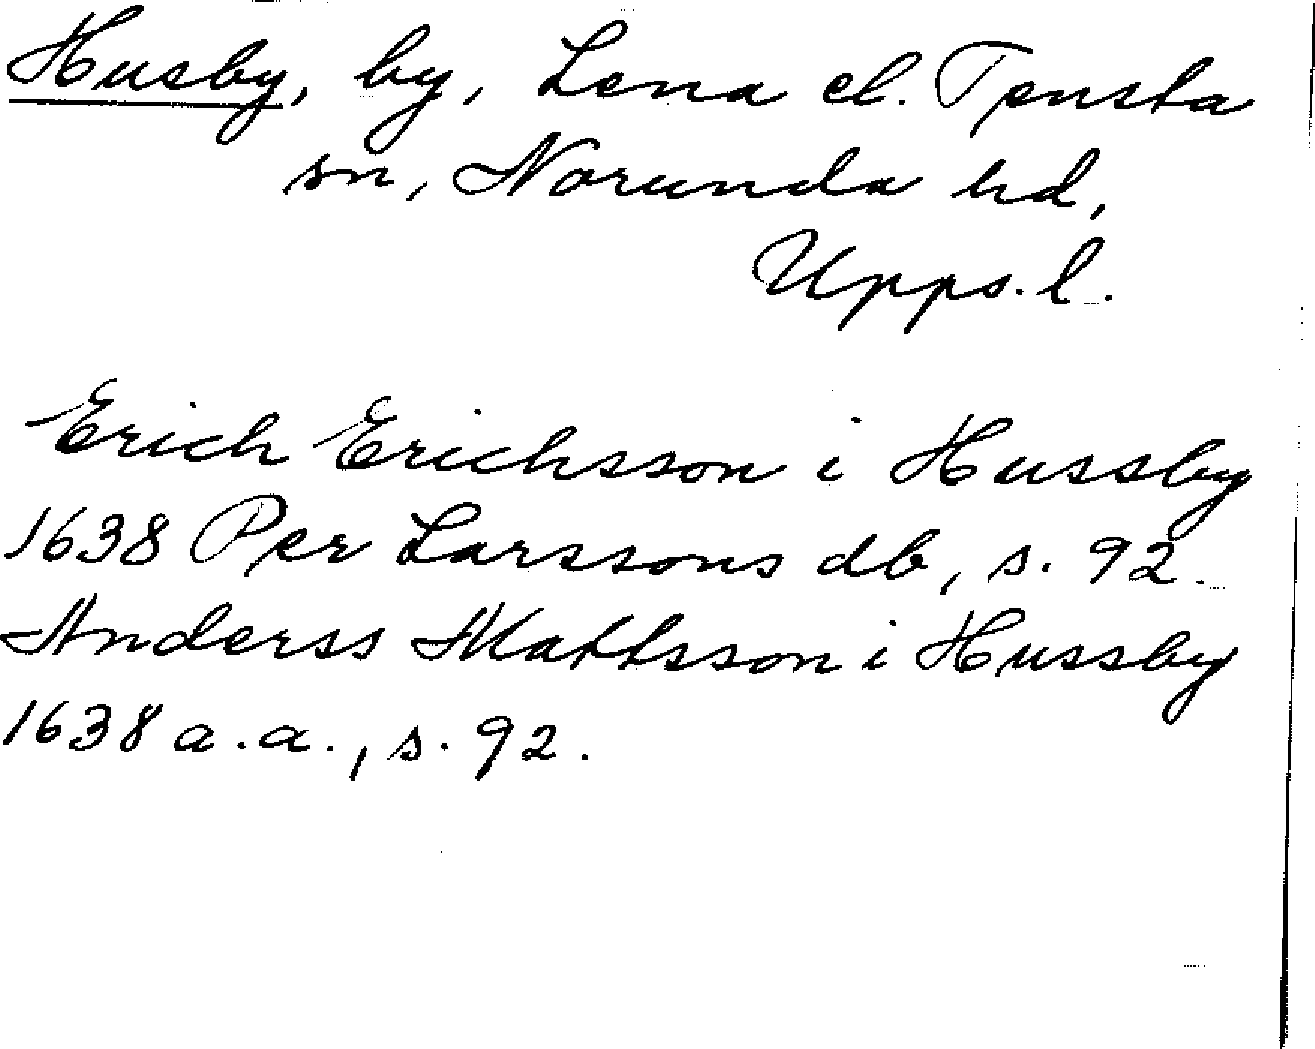 Husby, by, Lena el. Tensta
sn, Norunda hd,
Upps. l.
Erich Erichsson i Hussby
1638 Per Larssons db, s. 92.
Anderss Mattsson i Hussby
1638 a.a., s. 92.